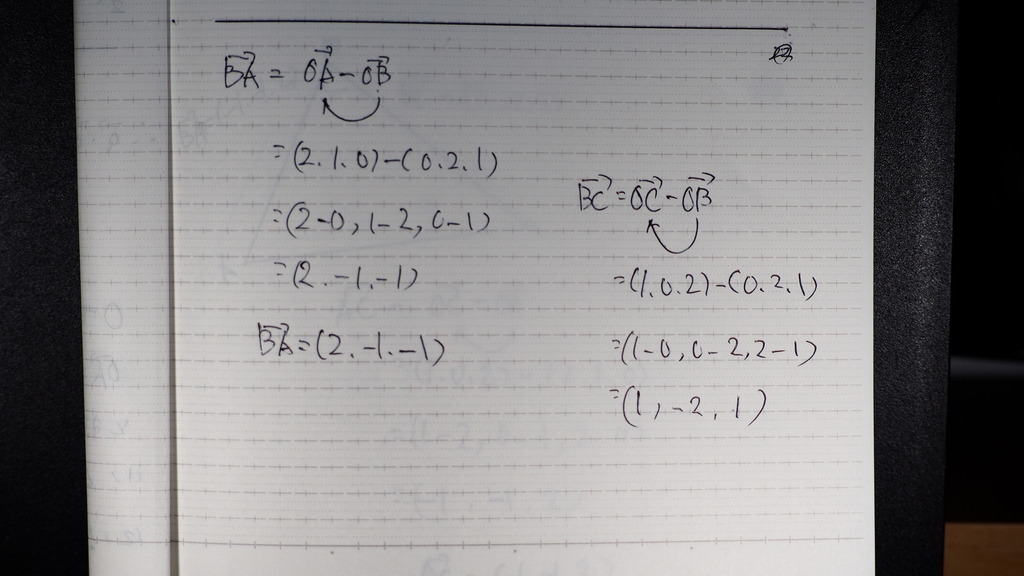 BA = OA - OB
=(2.1.0)-(0.2.1)
=(2-0, 1-2, 0-1)
=(2.-1.-1)
BA=(2.-1.-1)
BC=OC-OB
=(1.0.2)-(0.2.1)
=(1-0, 0-2, 2-1)
=(1, -2, 1)